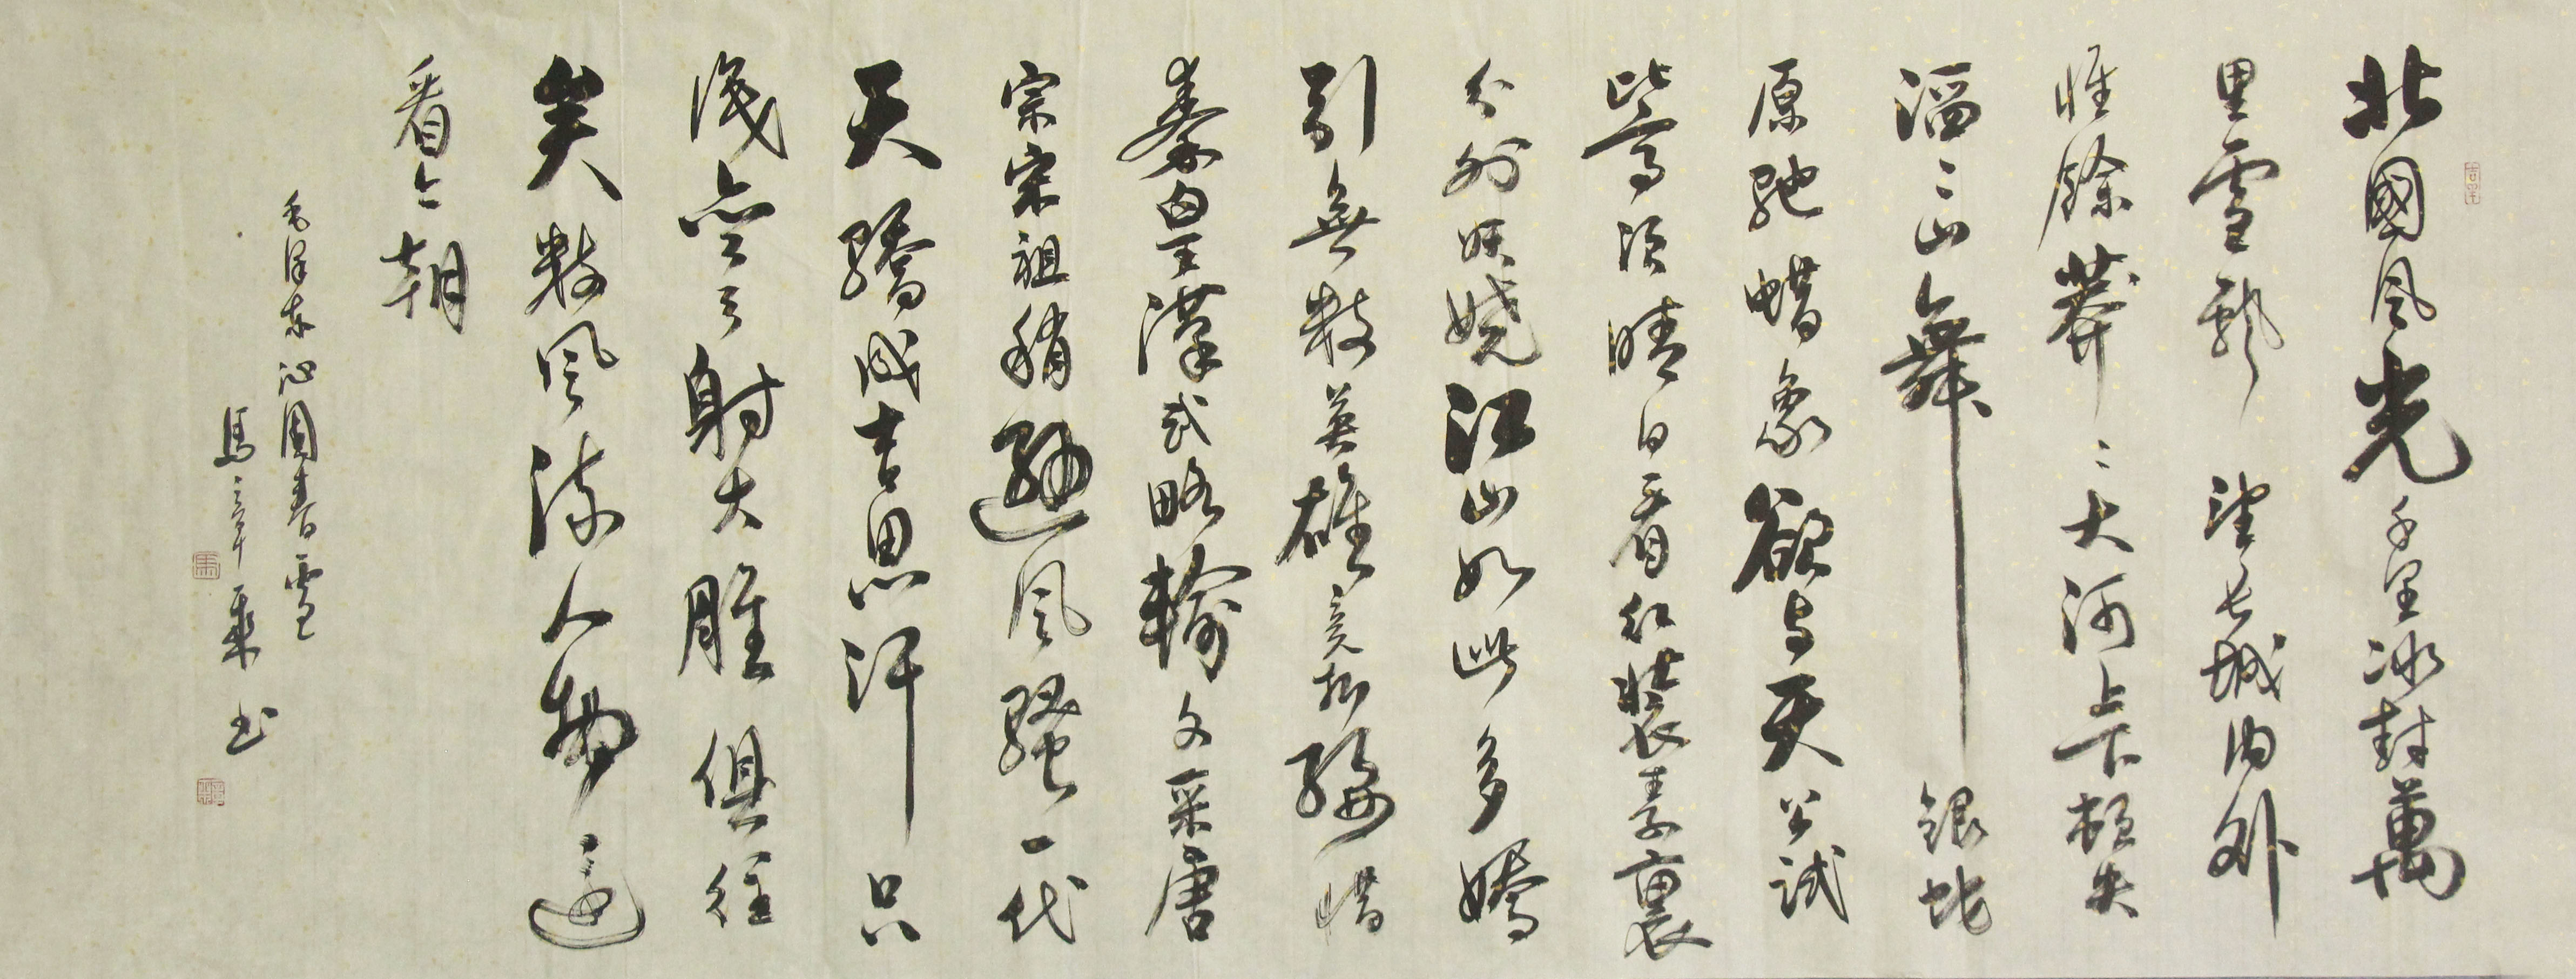 北國風光千里冰封萬
里雪飄望長城内外
惟餘莽〻大河上下頓失
滔〻山舞銀蛇
原馳蠟象欲与天公試
比高須晴日看红裝素裹
分外妖嬈江山如此多嬌
引無數英雄竞折腰惜
秦皇漢武略輸文采唐
宗宋祖稍遜風騷一代
天驕成吉思汗只
識彎弓射大雕俱往
矣數風流人物還
看今朝
毛澤东沁園春雪
馬